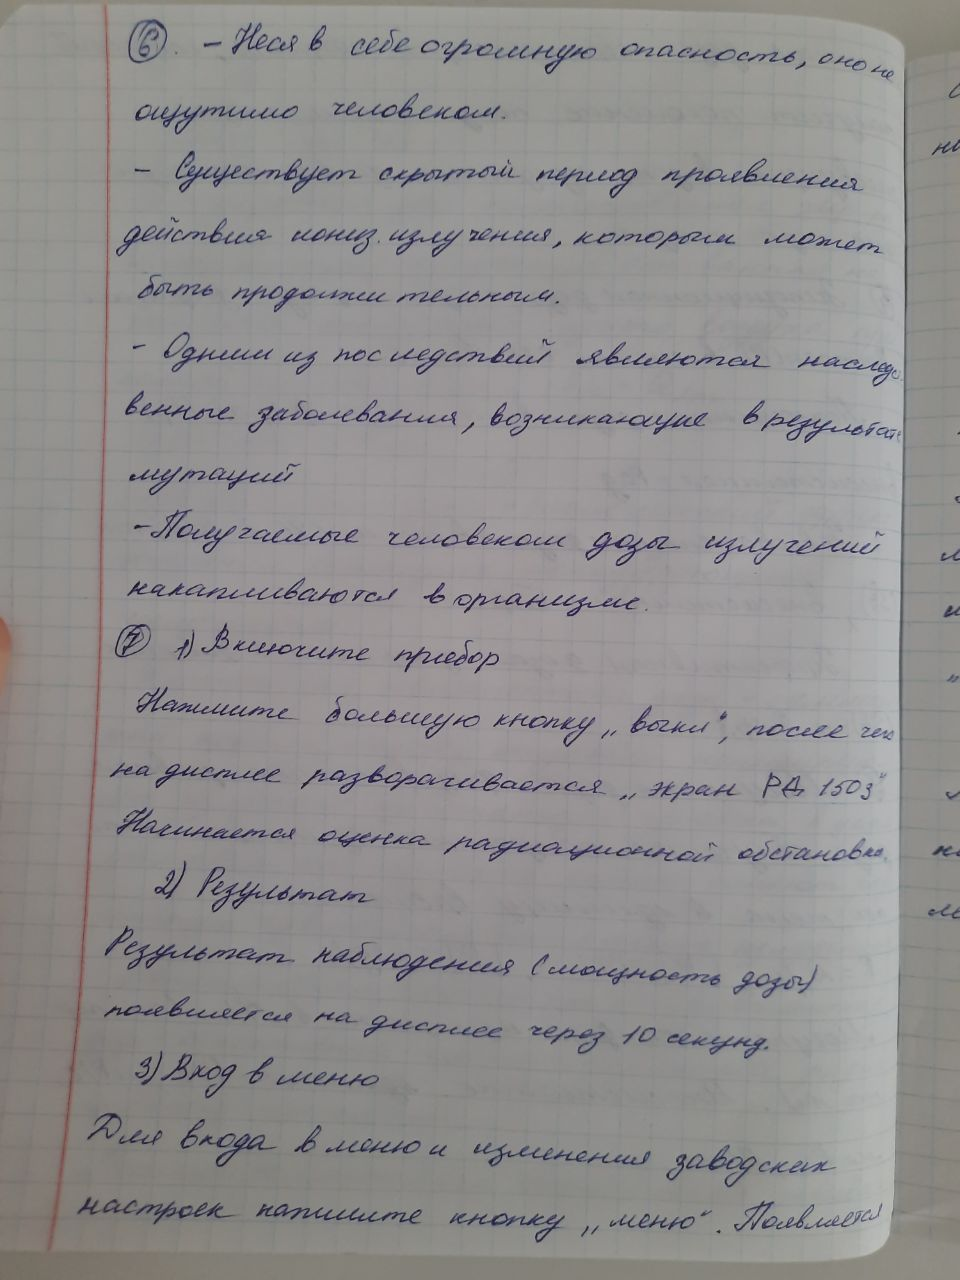 6. – Неся в себе огромную опасность, оно не
ощутимо человеком.
– Существует скрытый период проявления
действия иониз. излучения, которым может
быть продолжительным.
– Одним из последствий являются наследс
венные заболевания, возникающие в результате
мутаций
– Получаемые человеком дозы излучений
накапливаются в организме.
7 1) Включите прибор
Нажмите большую кнопку „выкл“, после чего
на дисплее разворачивается „экран РД 1503“
Начинается оценка радиационной обстановке.
2) Результат
Результат наблюдения (мощность дозы)
появляется на дисплее через 10 секунд.
3) Вход в меню
Для входа в меню и изменения заводских
настроек нажмите кнопку „меню“. Появляется